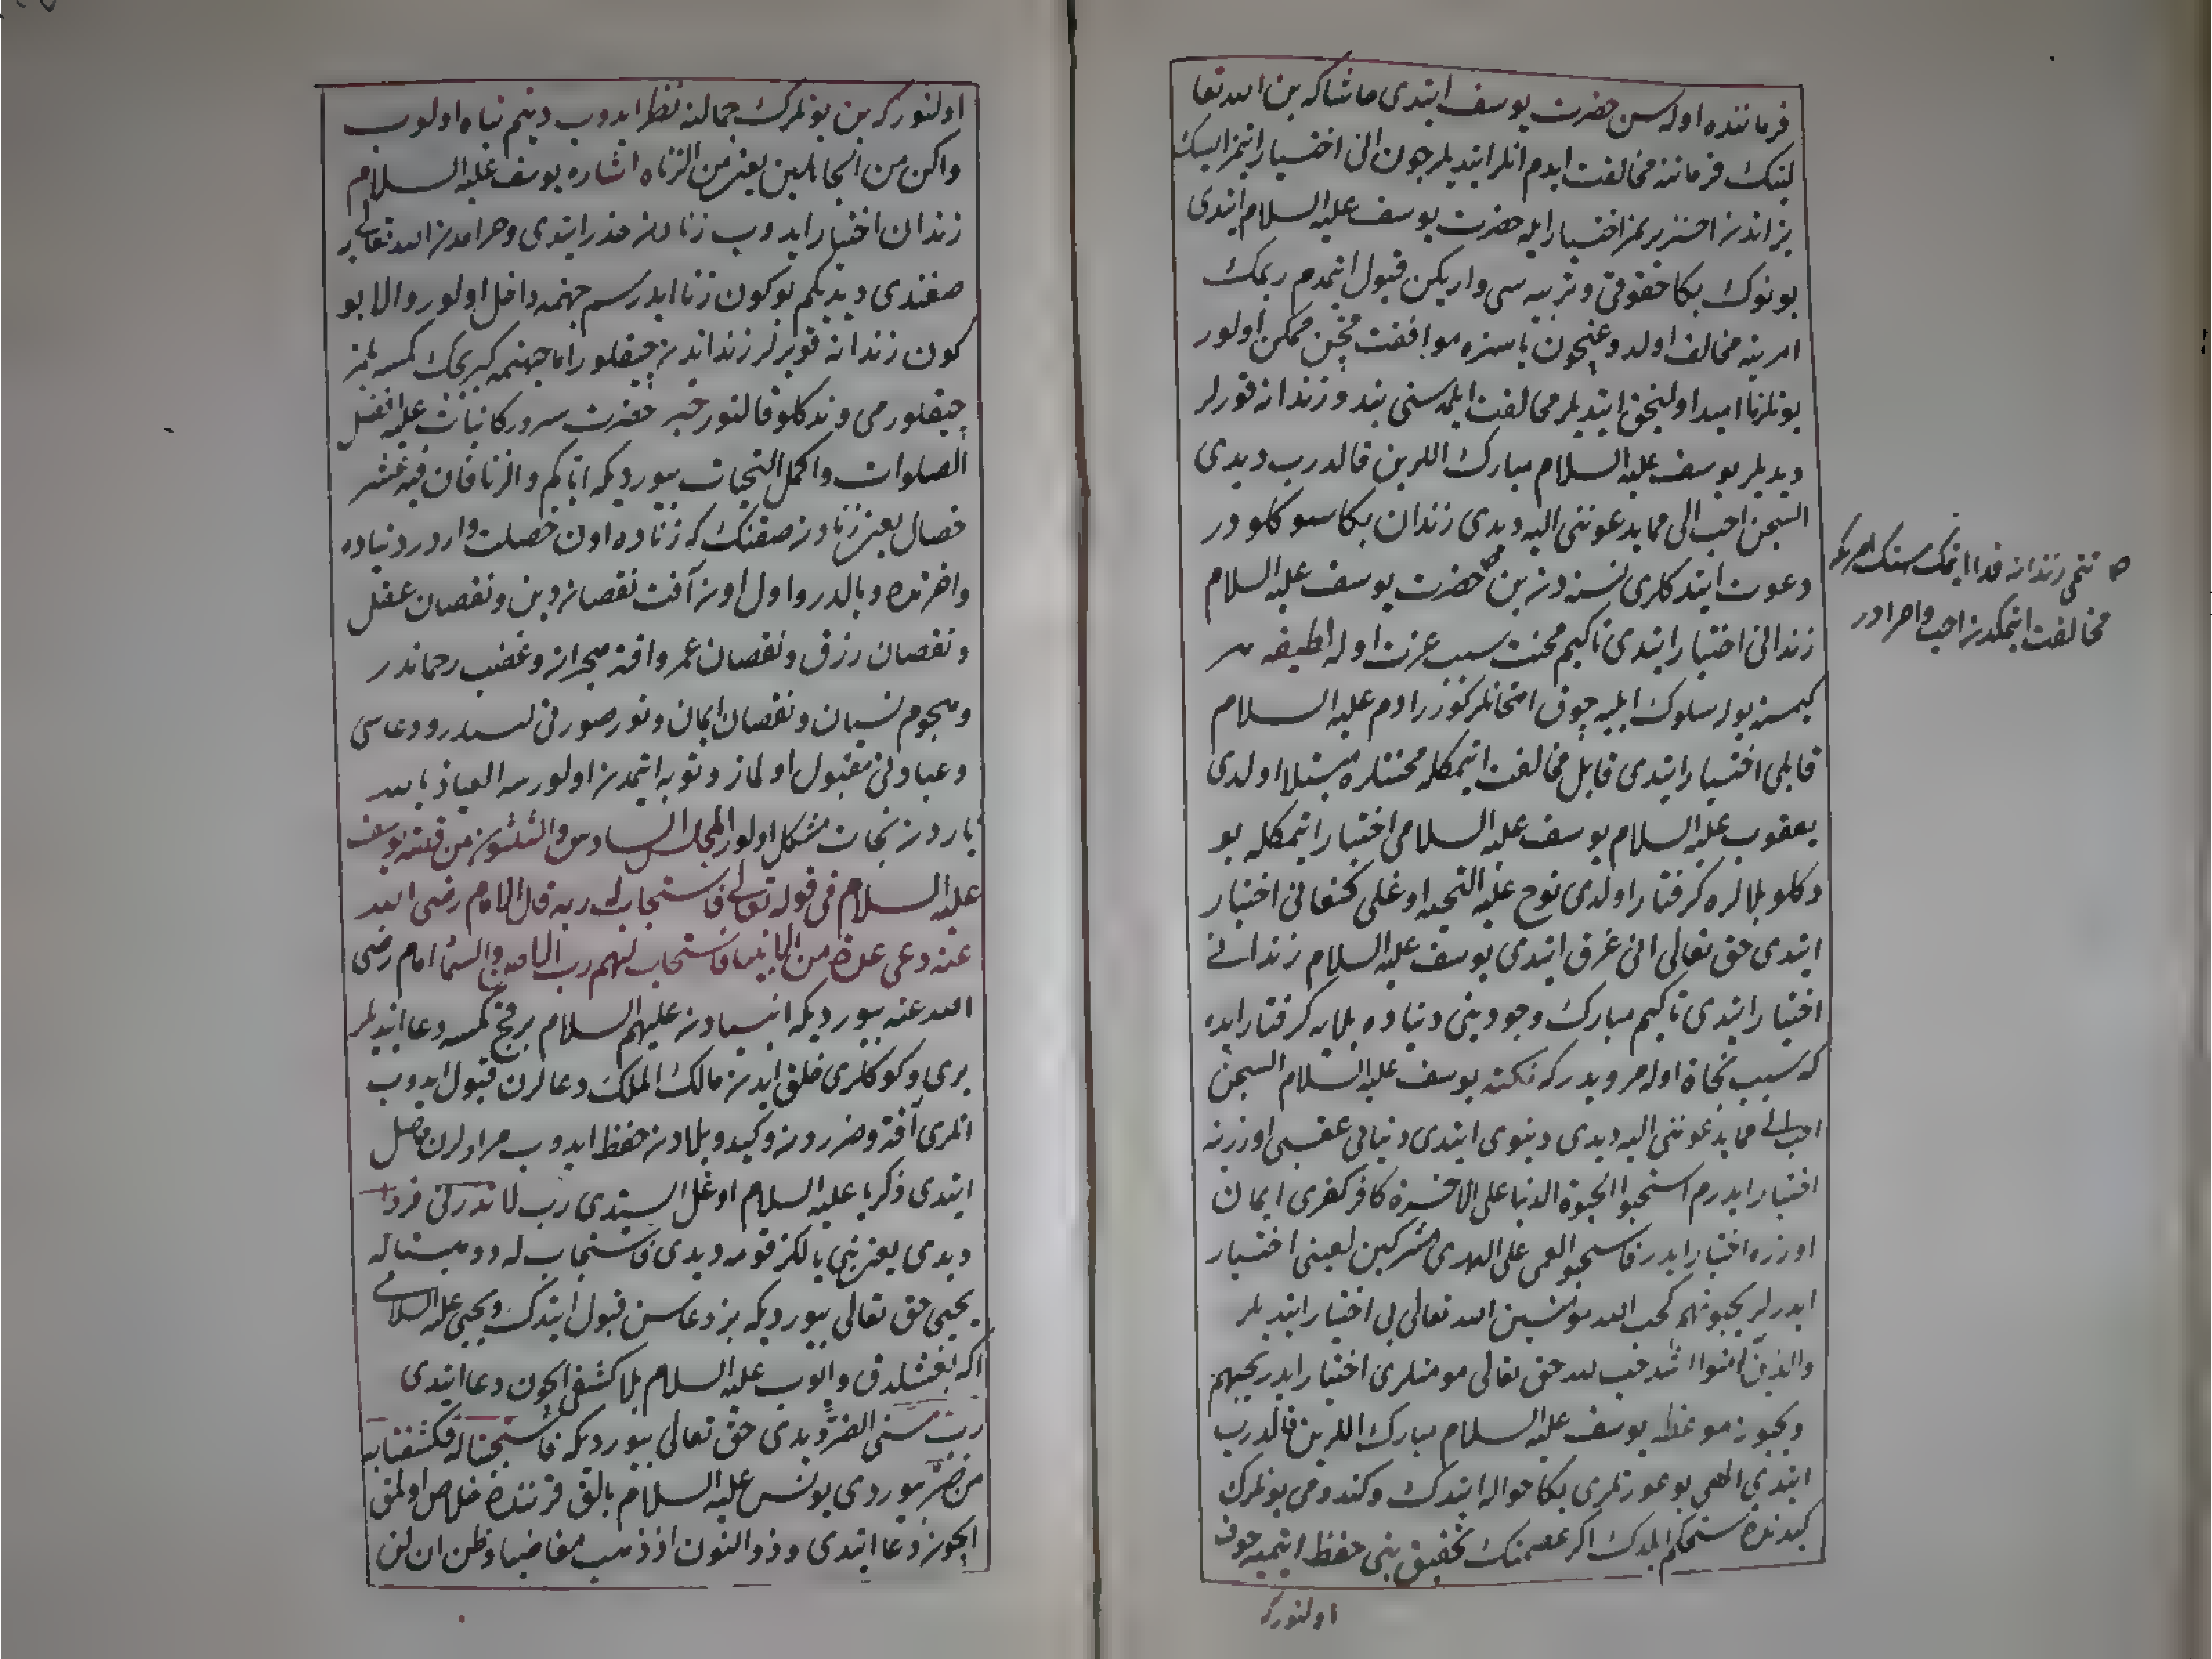 فرماننده اوله سن حضرت يوسف ايتدى حاشاكه بن الله تعا
لينك فرماننه مخالفت ايدم انلر ايتديلر چون انى اختيار ايتمزايسك
بز اندن احسنز بزمز اختيار ايله حضرت يوسف عليه السلام ايتدى
بونوك بكا حقوقى وتربيه سى واريكن قبول ايتمدم ربمك
امرينه مخالف اولدوغيچون ياسزه موافقت نيچن ممكن اولور
بونلر نااميد اوليجق ايتديلر مخالفت ايلمه سنى بند و زندانه قورلر
ديديلر يوسف عليه السلام مبارك اللرين قالدرب ديدى
السجن احب الى مما يدعوننى اليه ديدى زندان بكا سوكلودر
دعوت ايتدكلرى نسنه دن بن حضرت يوسف عليه السلام
زندانى اختيار ايتدى تاكيم محنت سبب عزت اوله لطيفه هر
كيمسنه بوله سلوك ايليه چوق امتحانلر كورر ادم عليه السلام
قابلى اختيار ايتدى قابل مخالفت ايتمكله محنتلره مبتلا اولدى
يعقوب عليه السلام يوسف عليه السلامى اختيار ايتمكله بو
دكلو بلالره كرفتار اولدى نوح عليه التحيه اوغلى كنعانى اختيار
ايتدى حق تعالى انى غرق ايتدى يوسف عليه السلام زندانى
اختيار ايتدى تاكيم مبارك وجودينى دنياده بلايه كرفتار ايده
كه سبب نجاة اوله مرويدركه نكته يوسف عليه السلام السجن
احب الى مما يدعوننى اليه ديدى دنيوى ايتدى دنيايى عقبى اوزرنه
اختيار ايدرم استحبوا الحيوة الدنيا على الاخرة كافر كفرى ايمان
اوزره اختيار ايدر فاستحبوا العمى على الهدى مشركين لعينى اختيار
ايدرلر يحبونهم كحب الله مؤمنين الله تعالى يى اختيار ايتديلر
والذين امنوا اشد حبا لله حق تعالى مومنلرى اختيار ايدر يحبهم
ويحبونه موعظه يوسف عليه السلام مبارك اللرين قالدرب
ايتدى الهى بو عورتلرى بكا حواله ايتدك وكندومى بونلرك
كيدندن ستحكم ايلدك اكر عصمتك تحقيق بنى حفظ ايتميه خوف
اولنوركه
ننمى زندانه فدا ايتمك سنك امريكه
مخالفت ايتمكدن احب واحرادر
اولنوركه بن بونلرك جمالنه نظر ايدوب دينم تباه اولوب
واكن من الجاهلين يعنى من الزناه اشاره يوسف عليه السلام
زندان اختيار ايدوب زنادن حذر ايتدى وحرامدن الله تعالى به
صغندى ديديكم بوكون زنا ايدرسم جهنمه داخل اولور والا بو
كون زندانه قويرلر زنداندن چيقلور اما جهنمه كيريجك كمسه بلمز
چيقلورمى وندكلو قالنور خبر حضرت سرور كائنات عليه افضل
الصلوات واكمل التحيات بيوردیكه اياكم والزنا فان فيه عشر
خصال يعنى زنادن صقنك كه زناده اون خصلت واردر دنياده
واخرتده وبالدر واول اوندن آفت نقصان دين ونقصان عقل
ونقصان رزق ونقصان عمر وافة هجران وغضب رحماندر
وهجوم نسيان ونقصان ايمان ونور صورتى لسدر ودعاسى
وعبادتى مقبول اولماز وتوبه ايتمدن اولورسه العياذ بالله
ناردن نجات مشكل اولور المجلس السادس والثلثون من قصه يوسف
عليه السلام فى قوله تعالى فاستجاب له ربه قال الامام رضى الله
عنه دعى عدة من الانبيا فاستجاب لهم رب الارض والسما امام رضى
الله عنه بيوردیكه انبيادن عليهم السلام برقچ كمسه دعا ايتديلر
يرى وكوكلرى خلق ايدن مالك الملك دعالرن قبول ايدوب
انلرى آفة وضرردن وكيد وبلادن حفظ ايدوب مرادلرن حاصل
ايتدى ذكريا عليه السلام اوغل استدى رب لا تذرنى فردا
ديدى يعنى بنى يالكز قومه ديدى فاستجاب له ووهبنا له
يحيى حق تعالى بيوردیكه بز دعاسن قبول ايتدك ويحيى عليه السلامى
اكه بغشلدق وايوب عليه السلام بلا كشفى ايچون دعا ايتدى
رب مسنى الضر ديدى حق تعالى بيوردیكه فاستجبنا له فكشفنا به
من ضر بيوردى يونس عليه السلام بالق قرننده خلاص اولمق
ايچون دعا ايتدى وذوالنون اذ ذهب مغاضبا وظن ان لن